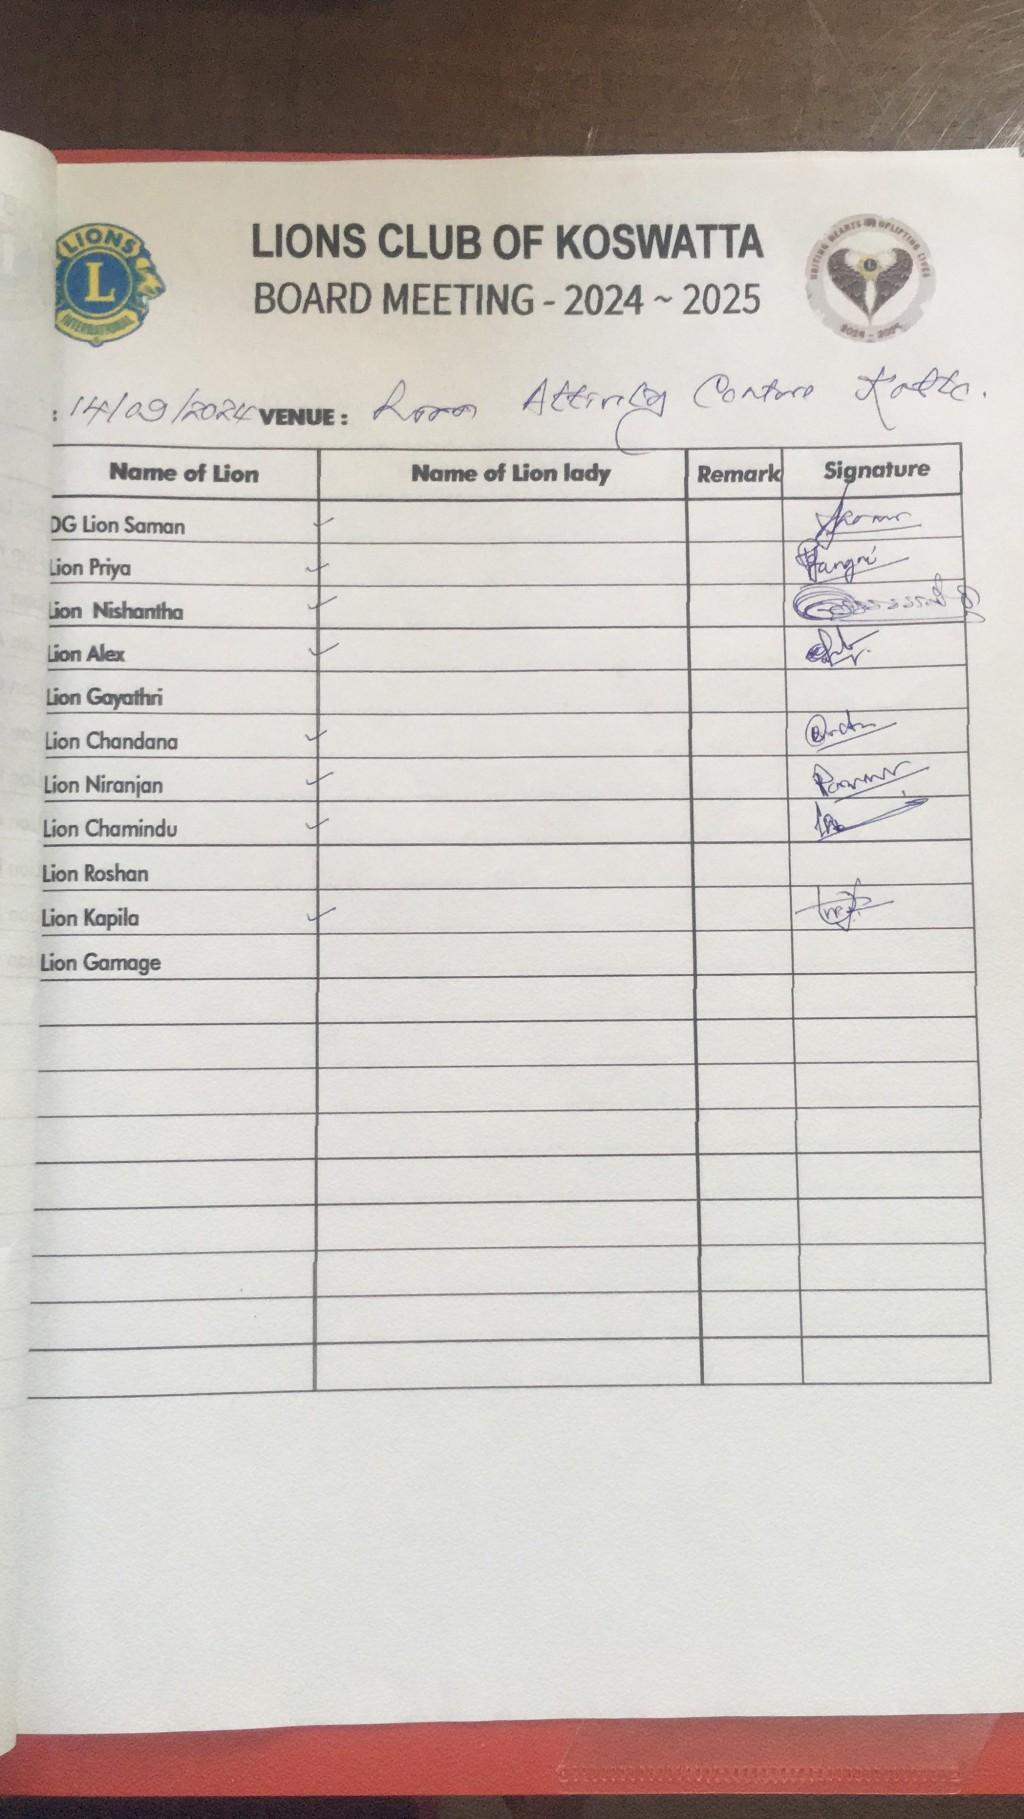 LIONS
L
INTERNATIONAL
LIONS CLUB OF KOSWATTA
BOARD MEETING - 2024 ~ 2025
UNITING HEARTS UPLIFTING LIVES
2024 - 2025
: 14/09/2024 VENUE :
Name of Lion Name of Lion lady Remark Signature
DG Lion Saman
Lion Priya
Lion Nishantha
Lion Alex
Lion Gayathri
Lion Chandana
Lion Niranjan
Lion Chamindu
Lion Roshan
Lion Kapila
Lion Gamage